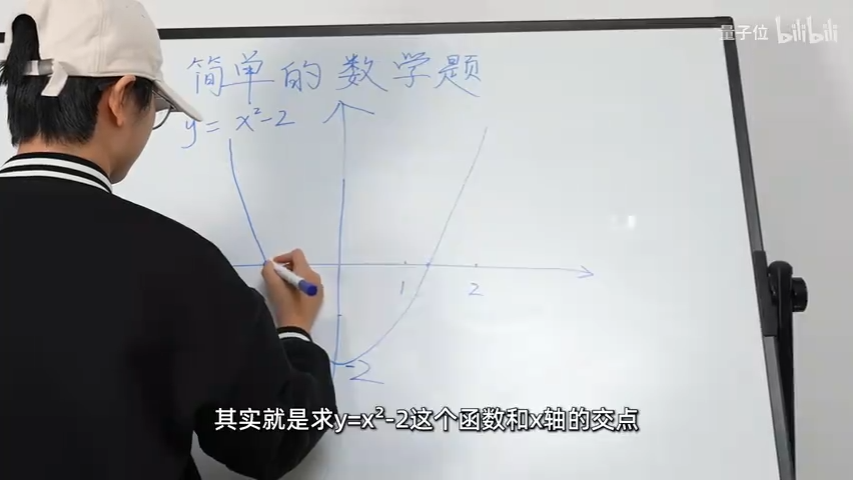 量子位 bilibili
简单的数学题
y = x²-2
1 2
-2
其实就是求y=x²-2这个函数和x轴的交点